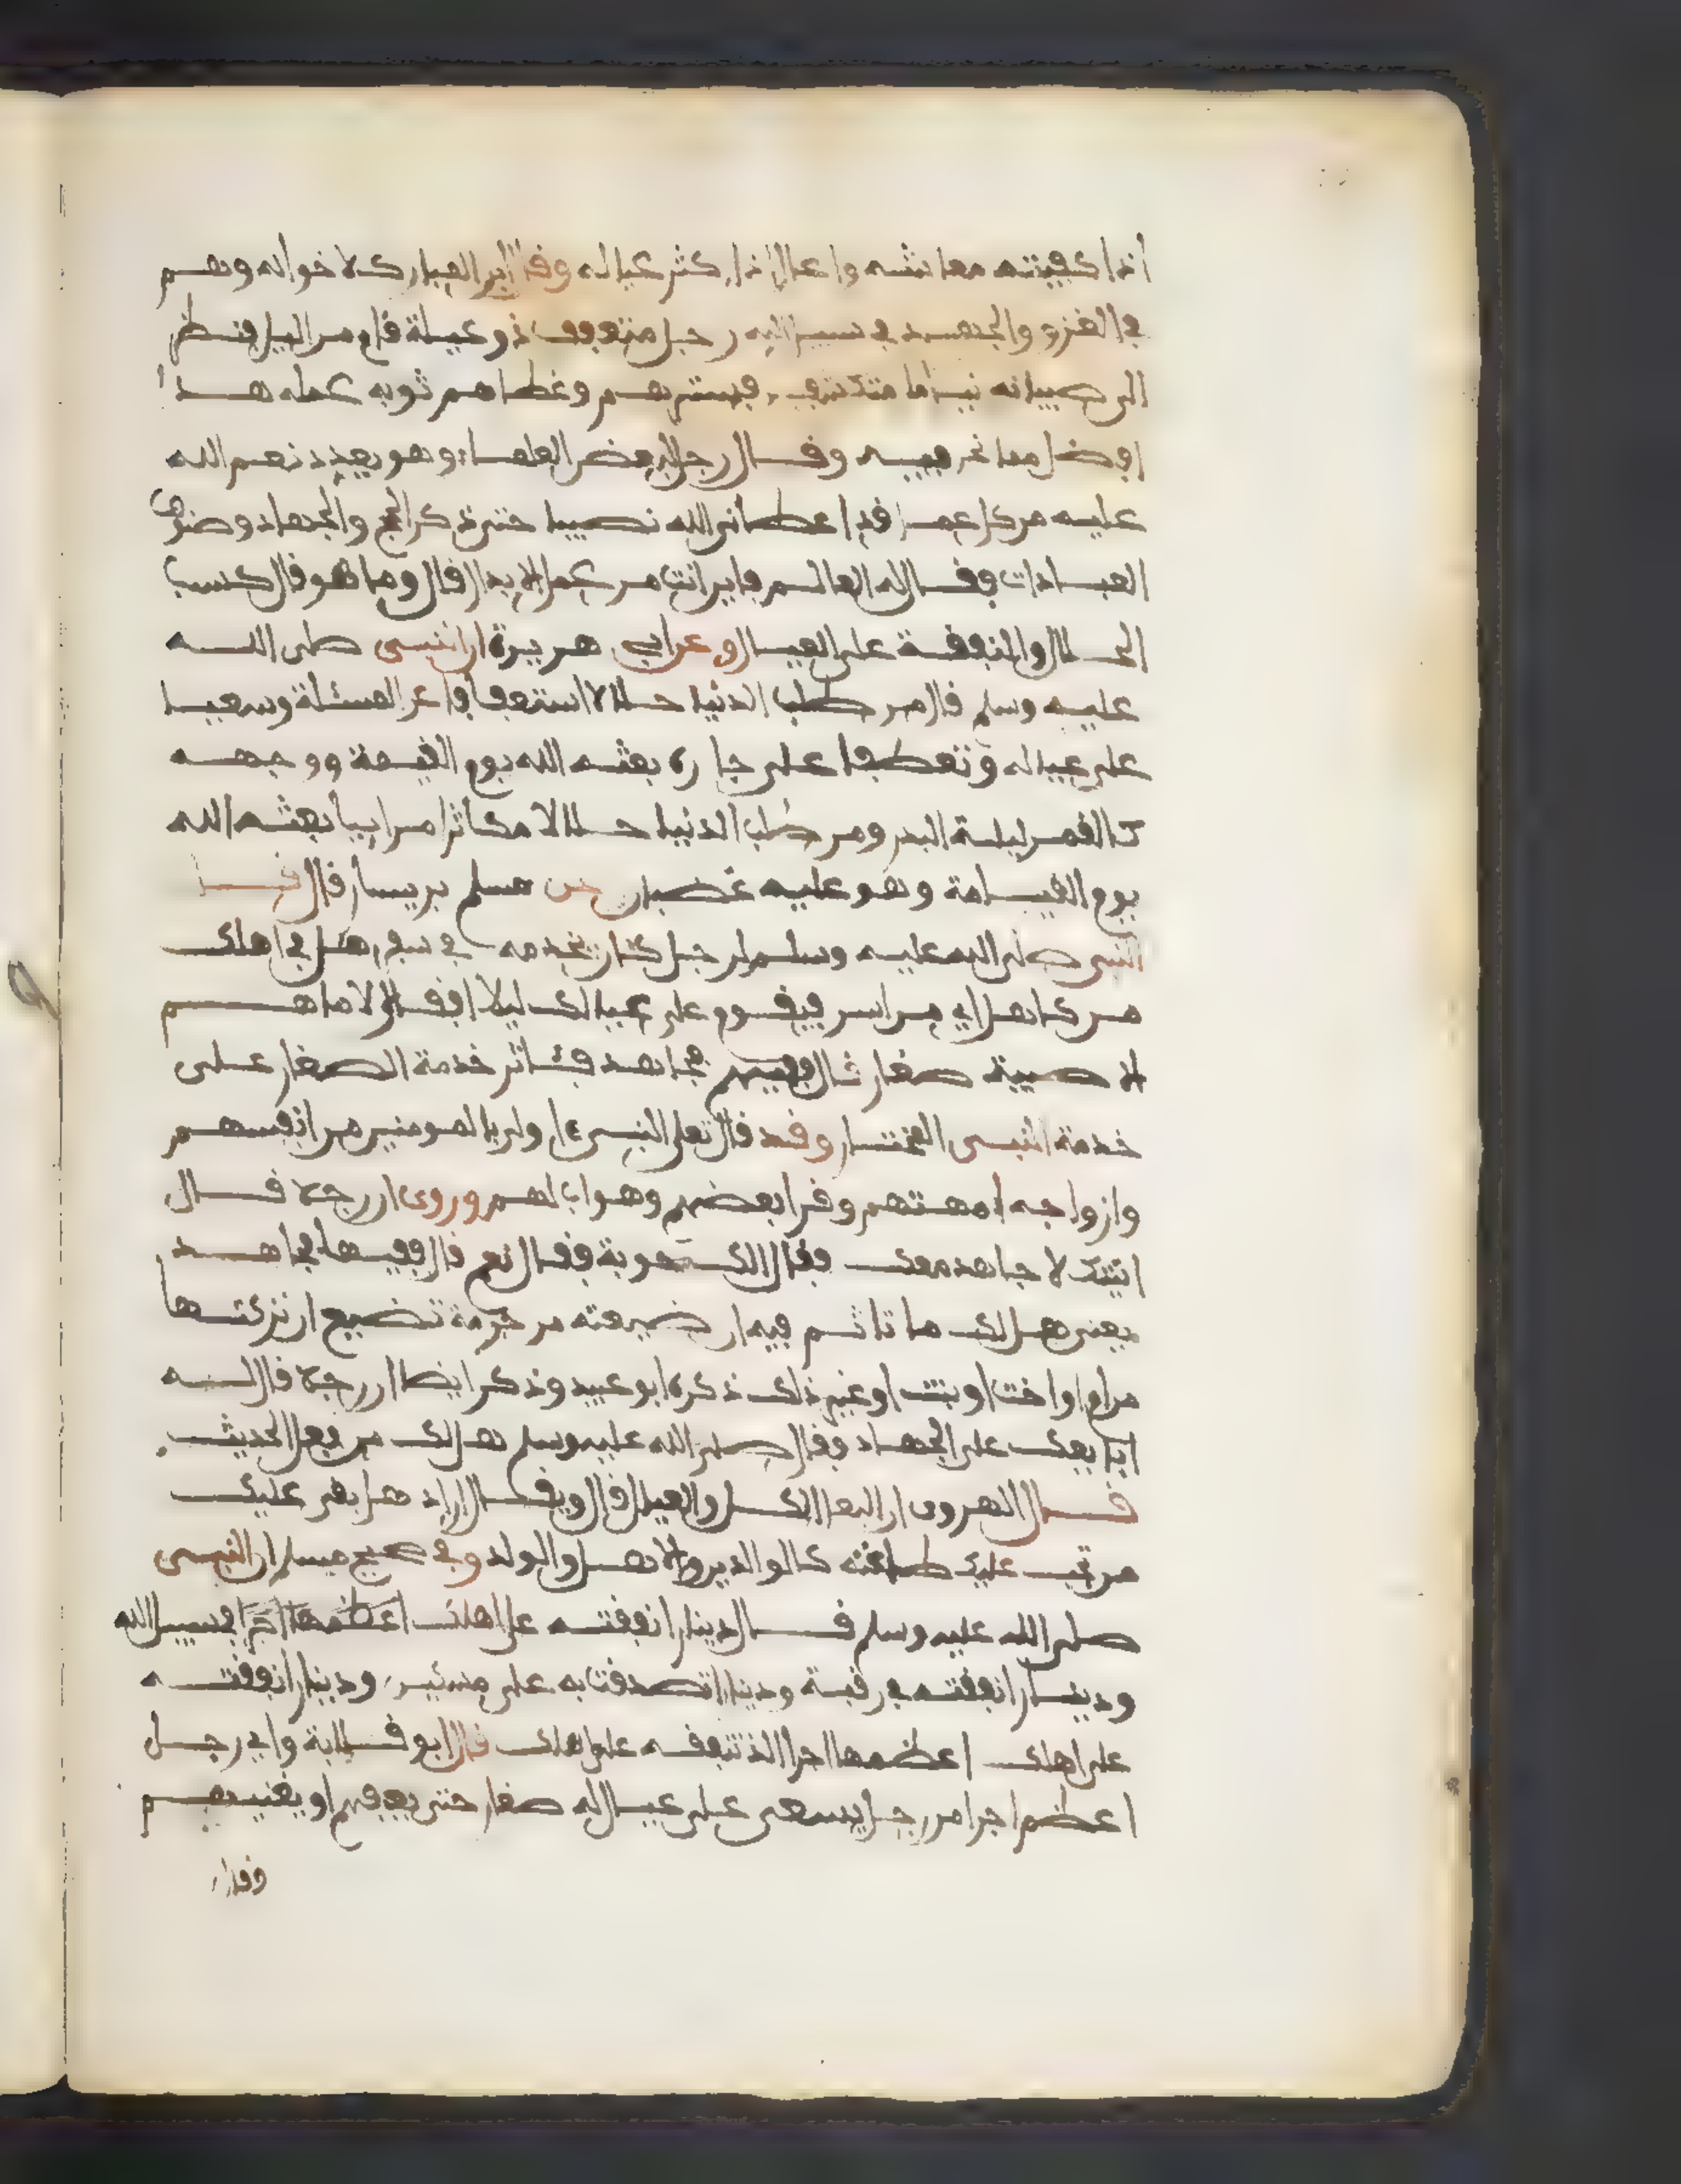 اذا كفيته معاشه واعال اذا كثر عياله وقال ابن المبارك لاخوانه وهم
في الغزو والجهد في سبيل الله رجل متعفف ذو عيلة قام من اليل فنظر
الى صبيانه نياما متكشفين فسترهم وغطاهم ثوبه عمله هذا
افضل مما نحن فيه وقال رجل لبعض العلماء وهو يعدد نعم الله
عليه من كل عمل قد اعطاني الله نصيبا حتى ذكر الحج والجهاد وضروب
العبادات فقال له العالم فاين انت من عمل الابدال قال وما هو قال كسب
الحلال والنفقة على العيال وعن ابي هريرة ان النبي صلى الله
عليه وسلم قال من طلب الدنيا حلالا استعفافا عن المسئلة وسعيا
على عياله وتعطفا على جاره بعثه الله يوم القيمة ووجهه
كالقمر ليلة البدر ومن طلب الدنيا حلالا مكاثرا مرابيا بعثه الله
يوم القيامة وهو عليه غضبان عن مسلم بن يسار قال قال
النبي صلى الله عليه وسلم لرجل كان يخدمه في سفر هل في اهلك
من كاهل اي من اسن فيقوم على عيالك ليلا فقال لا ما هم
الا صبية صغار قال ففيهم فجاهد فئاثر خدمة الصغار على
خدمة النبي المختار وقد قال تعلى النبي ءاولى بالمومنين من انفسهم
وازواجه امهتهم وقرا بعضهم وهو اب لهم وروى ان رجلا قال
اتيتك لاجاهد معك فقال الك حوبة فقال نعم قال ففيها فجاهد
يعني هل لك ما تاثم فيه ان ضيعته من حرمة تضيع ان تركتها
من ام او اخت او بنت او غير ذلك ذكره ابو عبيد وذكر ايضا ان رجلا قال له
ابايعك على الجهاد فقال صلى الله عليه وسلم هل لك من بعل الحديث
قال الهروى ان البعل الكل والعيال قال ويقال اراد هل بقي عليك
من تجب عليك طاعته كالوالدين والاهل والولد وفي صحيح مسلم ان النبي
صلى الله عليه وسلم قال دينار انفقته على اهلك اعظمها اجرا في سبيل الله
ودينار انفقته في رقبة ودينار تصدقت به على مسكين ودينار انفقته
على اهلك اعظمها اجرا الذ تنفقه على اهلك قال ابو قلابة واي رجل
اعظم اجرا من رجل يسعى على عيال له صغار حتى يعفهم او يغنيهم